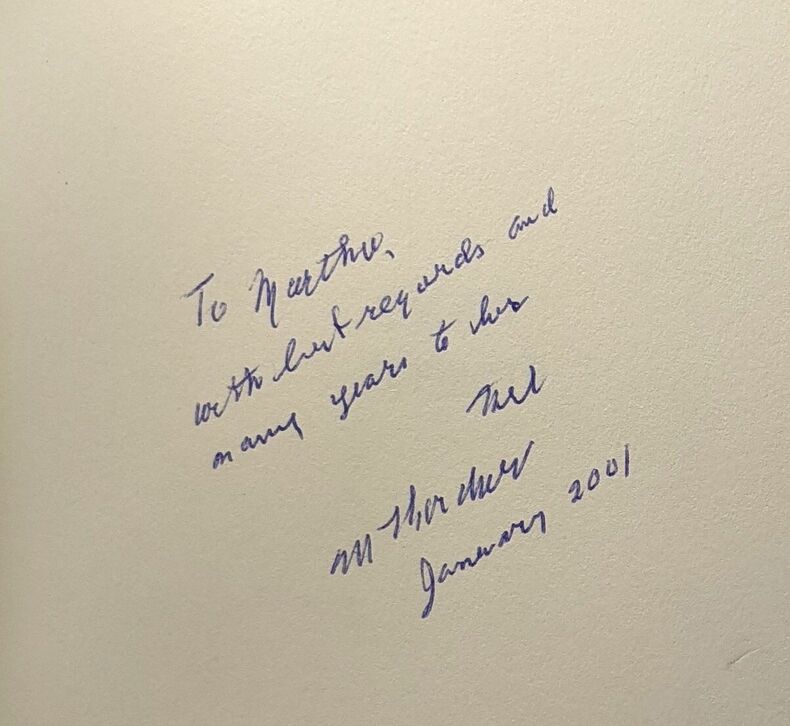 To Martha,
with best regards and
many years to her
Mel
January 2001